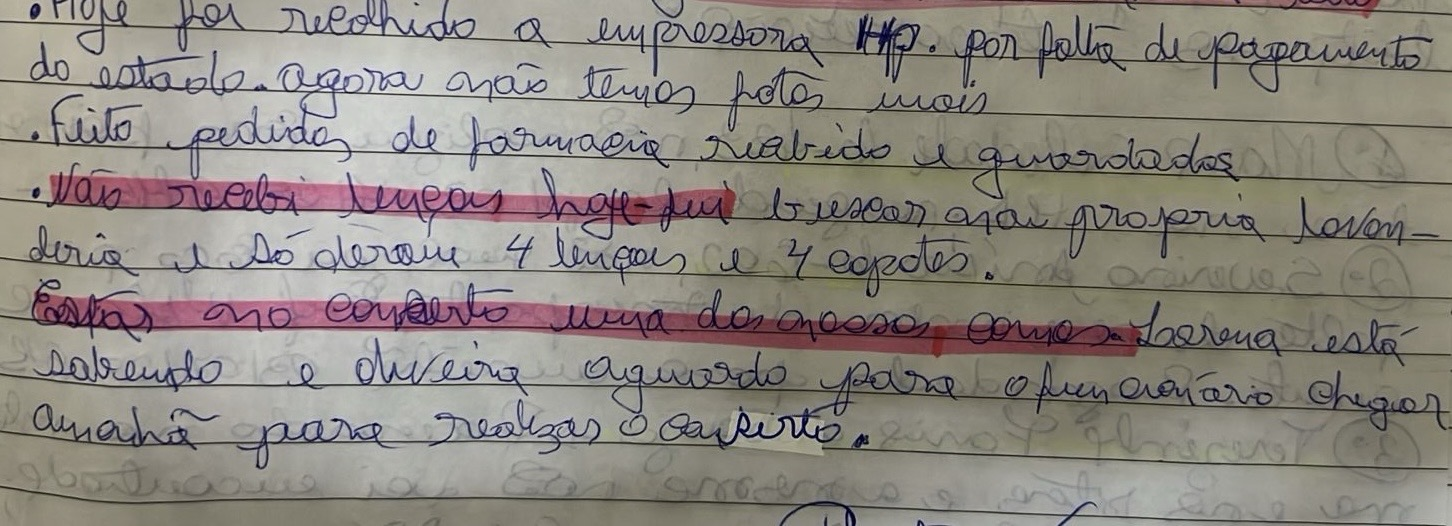 . Hoje foi recolhido a empressora HP. por falta de pagamento
do estado. agora não temos fotos mais
. Feito pedidos de farmacia recebido e guardados
. Não recebi lençóis hoje - fui buscar na propria lavan-
deria e só deram 4 lençóis e 4 capotes.
Está no conserto uma das nossas camas. Lorena está
sabendo e aguardo para o funcionário chegar
amanhã para realizar o conserto.